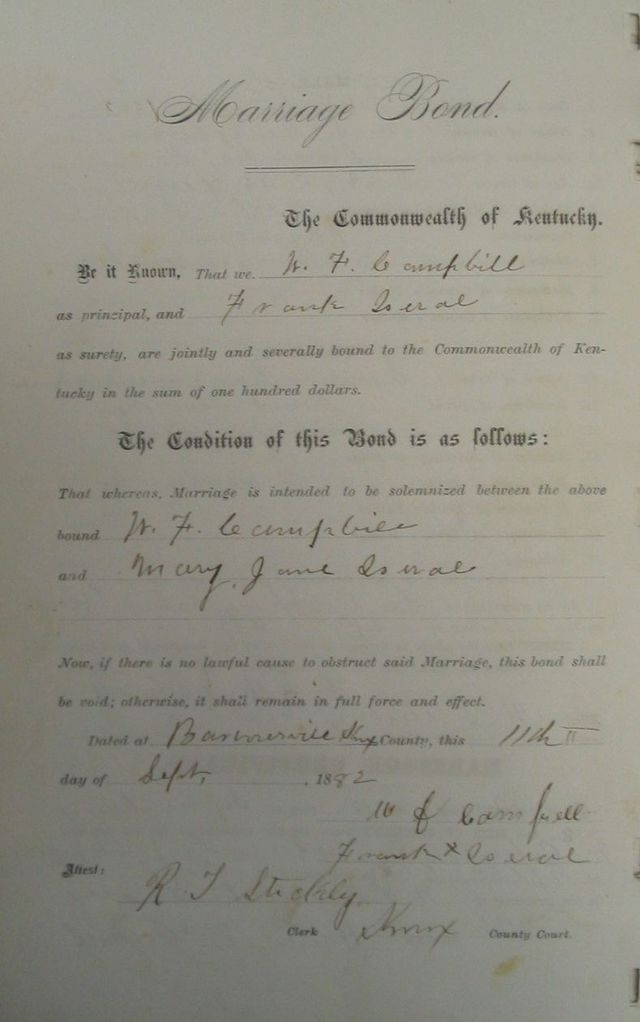 Marriage Bond.
The Commonwealth of Kentucky.
Be it Known, That we. W. F. Campbill
as principal, and Frank Iseral
as surety, are jointly and severally bound to the Commonwealth of Ken-
tucky in the sum of one hundred dollars.
The Condition of this Bond is as follows:
That whereas, Marriage is intended to be solemnized between the above
bound W. F. Campbill
and Mary Jane Iseral
Now, if there is no lawful cause to obstruct said Marriage, this bond shall
be void; otherwise, it shall remain in full force and effect.
Dated at Knx County, this 11th
day of Sept, 1882
W F Campbell
Frank x Iseral
Attest:
R. T.
Clerk Knox County Court.